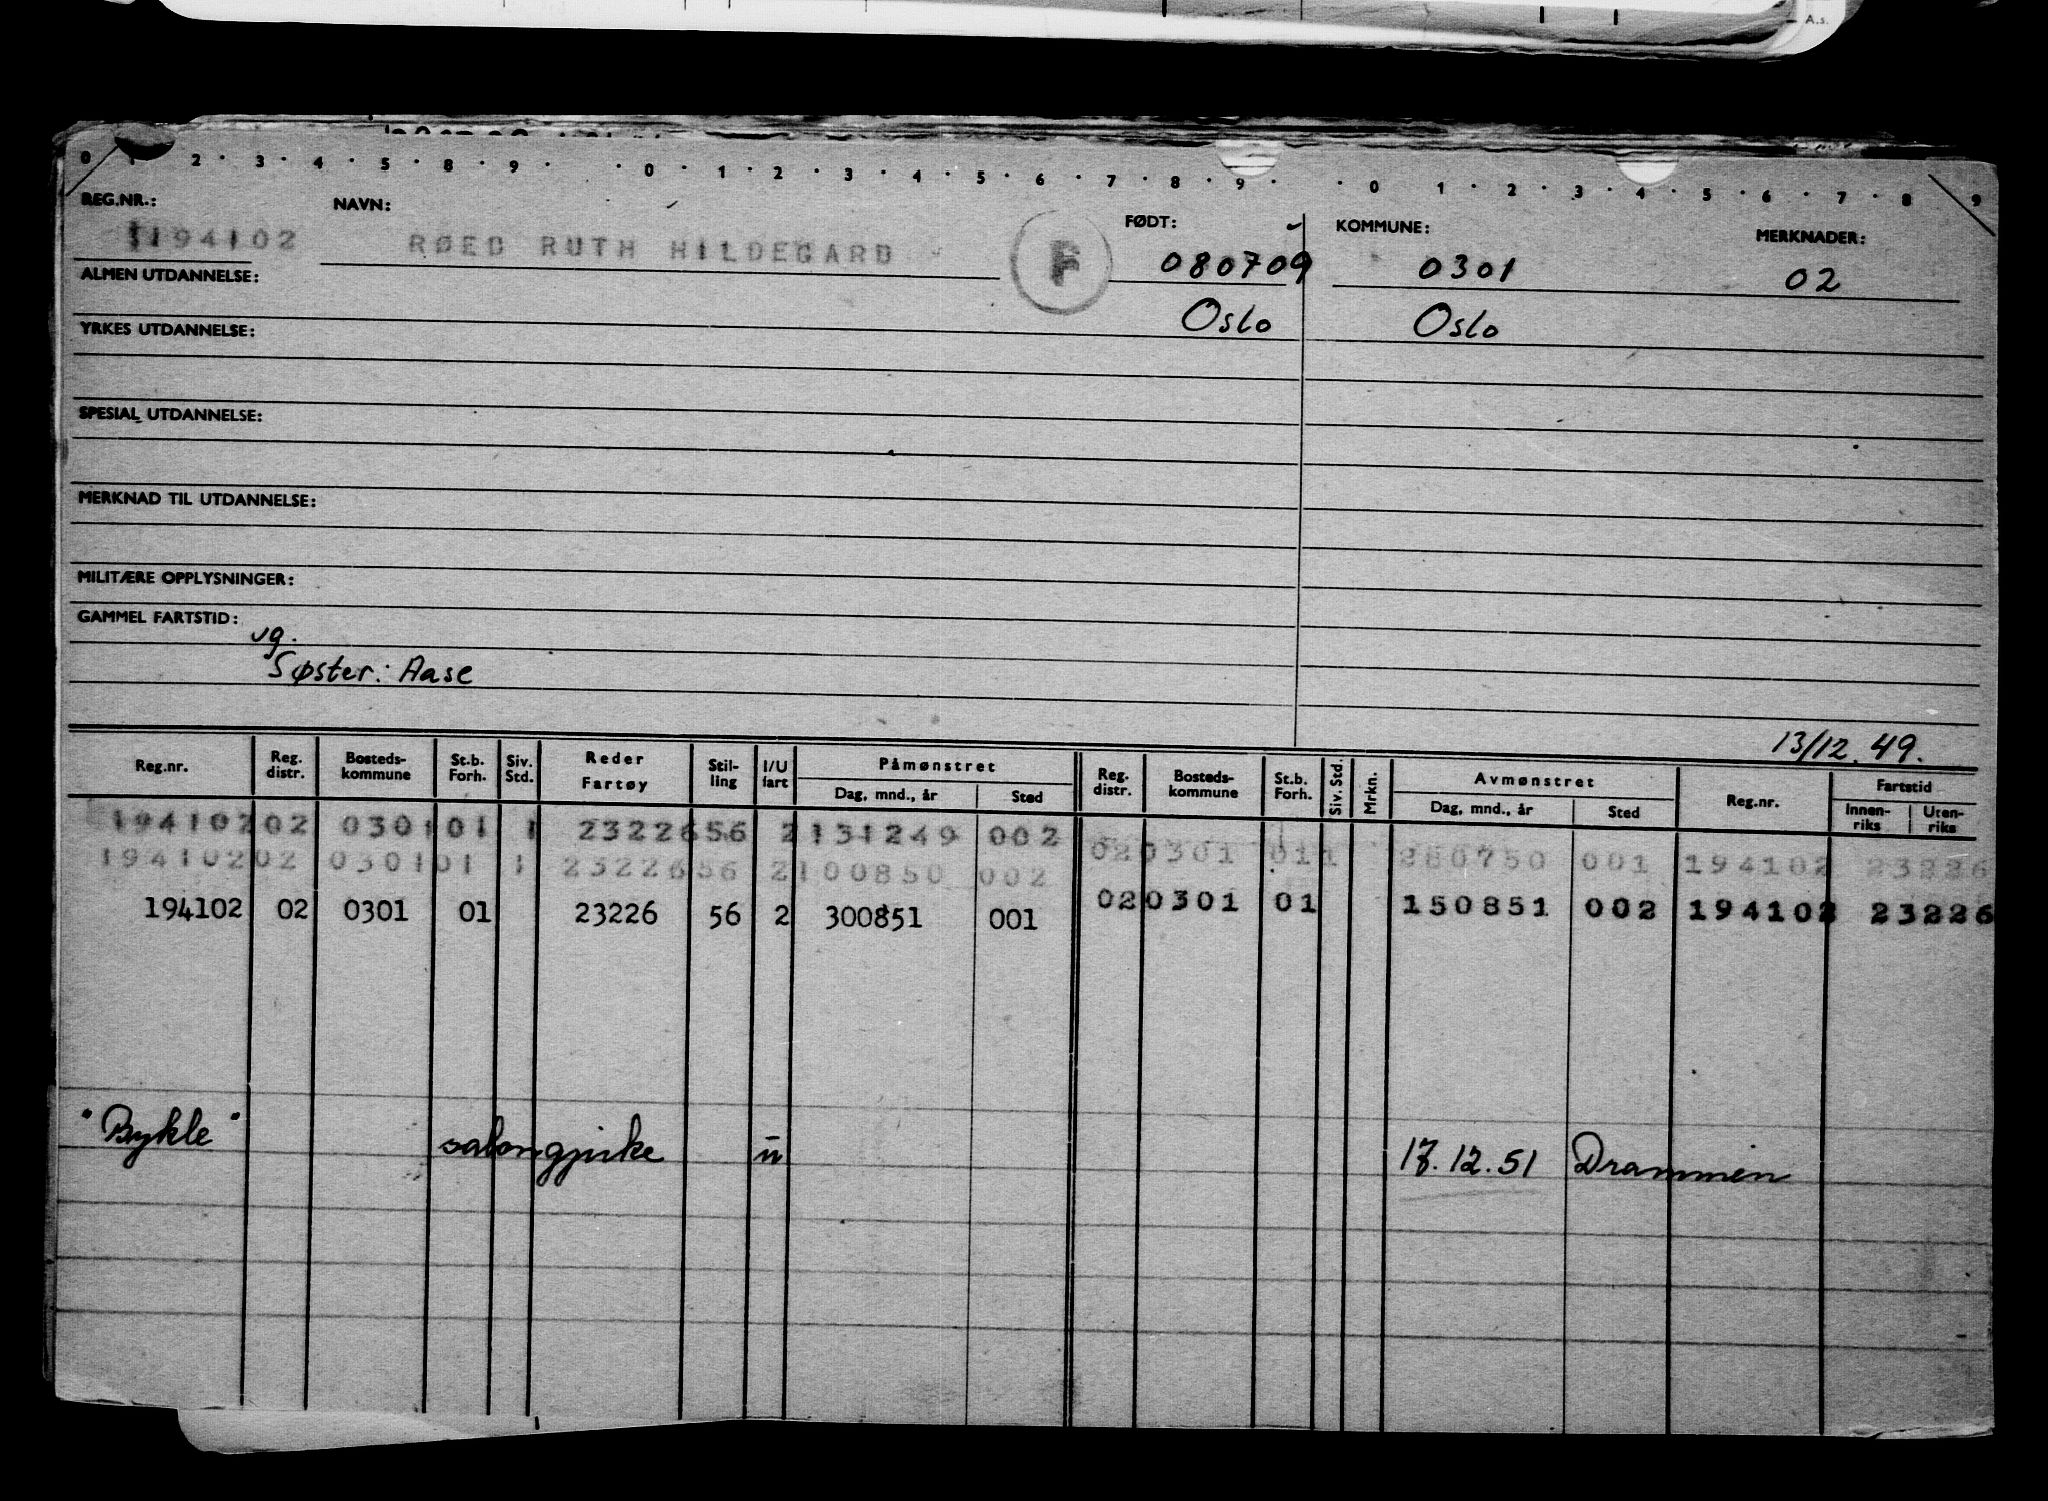 A.s.
0 1 2 · 3 · 4 · 5 · 8 · 9 · · 0 · 1 · 2 · 3 · 4 · 5 · 6 · 7 · 8 · 9 · · 0 1 · 2 · 3 · 4 · 5 · 6 · 7 · 8 · 9
REG.NR.: NAVN: FØDT: KOMMUNE: MERKNADER:
194102 RØED RUTH HILDEGARD F 080709 0301 02
ALMEN UTDANNELSE: Oslo Oslo
YRKES UTDANNELSE:
SPESIAL UTDANNELSE:
MERKNAD TIL UTDANNELSE:
MILITÆRE OPPLYSNINGER:
GAMMEL FARTSTID:
ug.
Søster: Aase
13/12.49.
Reg.nr. Reg. distr. Bosteds-kommune St.b. Forh. Siv. Std. Reder Fartøy Stil-ling I/U fart Påmønstret Dag, mnd., år Sted Reg. distr. Bosteds-kommune St.b. Forh. Siv. Std. Mrkn. Avmønstret Dag, mnd., år Sted Reg.nr. Fartstid Innen-riks Uten-riks
194102 02 0301 01 1 23226 56 2 131249 002 02 0301 01 1 280750 001 194102 23226
194102 02 0301 01 1 23226 56 2 100850 002 02 0301 01 150851 002 194102 23226
194102 02 0301 01 23226 56 2 300851 001
"Bykle" salongpike u 17.12.51 Drammen